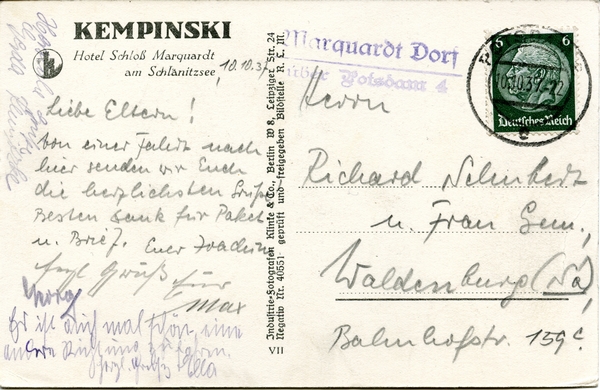 KEMPINSKI
Hotel Schloß Marquardt
am Schlänitzsee
10.10.37
Liebe Eltern!
Von einer Fahrt nach
hier senden wir Euch
die herzlichsten Grüße
Besten Dank für Paket
u. Brief. Euer Joachim
herzl. Grüße Euer
Max
Georg
Es ist auch mal schön, eine
andere Richtung zu fahren.
herzl. Grüße Ella
Industrie-Fotografen Klinke & Co., Berlin W 8, Leipziger Str. 24
Negativ Nr. 40551 geprüft und freigegeben Bildstelle R. L. M.
VII
Marquardt Dorf
über Potsdam 4
6 6
Deutsches Reich
10.10.37
Herrn
Richard
u. Frau Gem.
Waldenburg (Sa)
Bahnhofstr. 159c